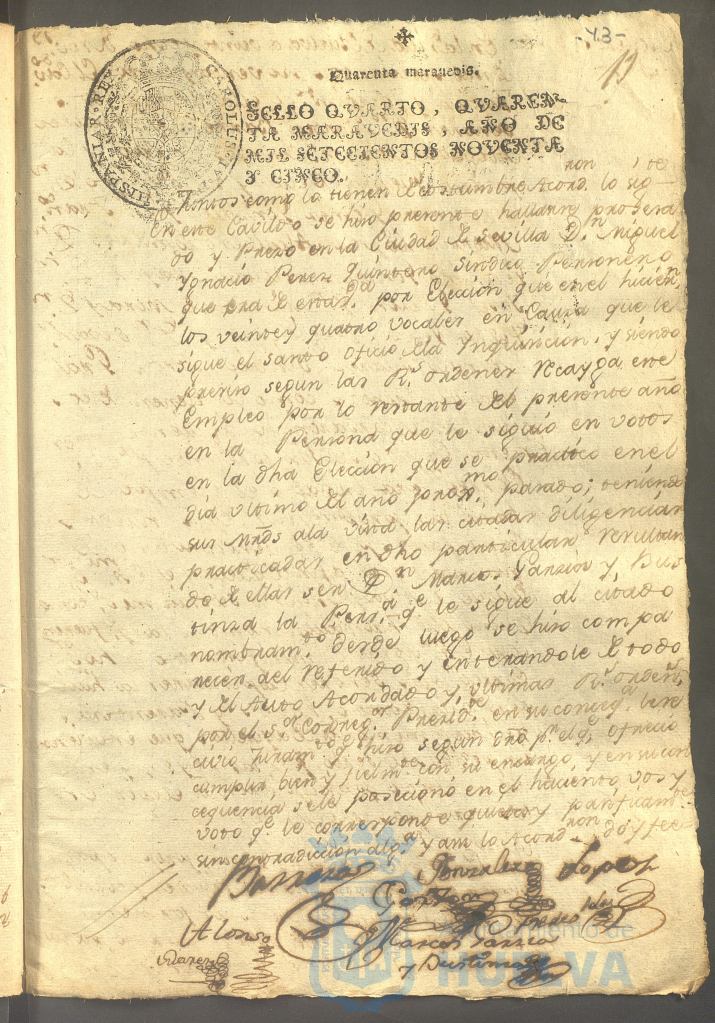 -43-
Quarenta maravedis.
SELLO QVARTO, QVAREN-
TA MARAVEDIS, AÑO DE
MIL SETECIENTOS NOVENTA
Y CINCO.
HISPANIAR. REX CAROLUS IV
Juntos como lo tienen de costumbre Acord.ron lo sig.te
En este Cavildo se hizo presente hallarse procesa
do y Preso en la Ciudad de Sevilla D.n Miguel
Ygnacio Perez Quintero Sindico Personero
que era de esta por Elección que en el hicier.n
los veinte y quatro vocales en Causa que le
sigue el santo oficio de la Ynquisicion, y siendo
preciso segun las R.s ordenes recayga este
Empleo por lo restante del presente año
en la Persona que le siguió en votos
en la dha Elección que se practicó en el
dia ultimo del año prox.mo pasado; teniendo
sus Mrds ala vista las citadas diligencias
practicadas en dho particular resultan
do de ellas ser D.n Marcos Garzia y Bus
tinza la Pers.a q.e le sigue al citado
nombram.to desde luego se hizo compa
recer del referido y enterandole de todo
y del Auto Acordado y ultimas R.s orden.s
por el s.or Correg.or Presid.te en su conseq.a
civió Juram.to q.e hizo segun dro p.r el q.e ofreció
cumplir bien y fielm.te con su encargo, y en su con
cequencia se le posicionó en el haciento, vos y
voto q.e le corresponde quieta y pacificam.te
sin contradicción alg.a y asi lo Acord.ron doy fee
Barrera Gonzalez Lopez
Alonso
Marcos Garzia
y Bustinza
Suarez
Ayuntamiento de
HUELVA